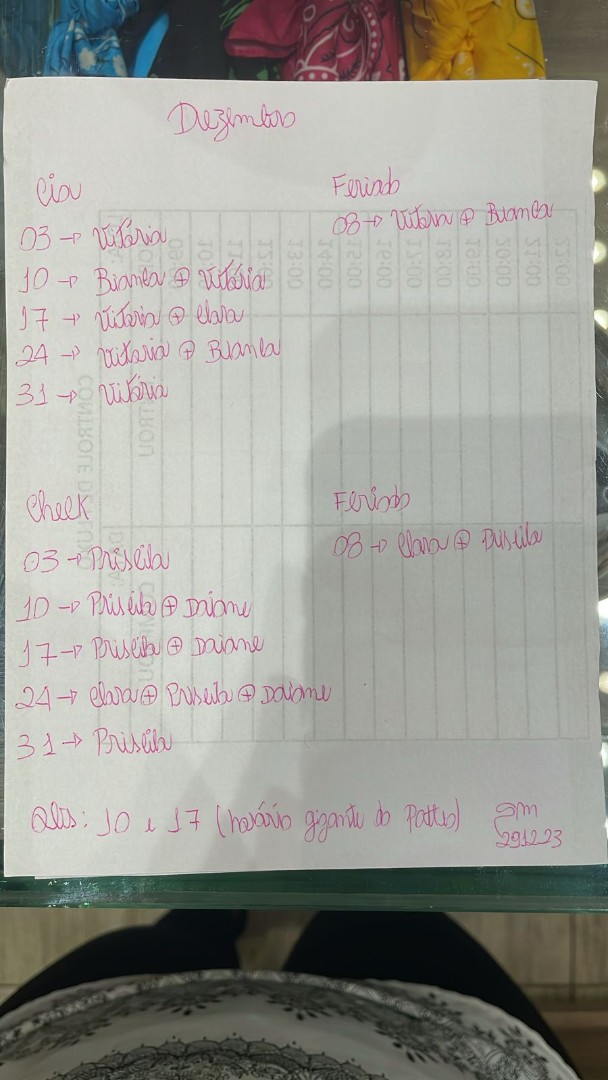 Dezembro
Cia
03 → Vitória
10 → Bianca ⊕ Vitória
17 → Vitória ⊕ Clara
24 → Vitória ⊕ Bianca
31 → Vitória
Feriado
08 → Vitória ⊕ Bianca
Check
03 → Priscila
10 → Priscila ⊕ Daiane
17 → Priscila ⊕ Daiane
24 → Clara ⊕ Priscila ⊕ Daiane
31 → Priscila
Feriado
08 → Clara ⊕ Priscila
Obs: 10 e 17 (horário gigante do Patteo)
09:00
10:00
11:00
12:00
13:00
14:00
15:00
16:00
17:00
18:00
19:00
20:00
21:00
22:00